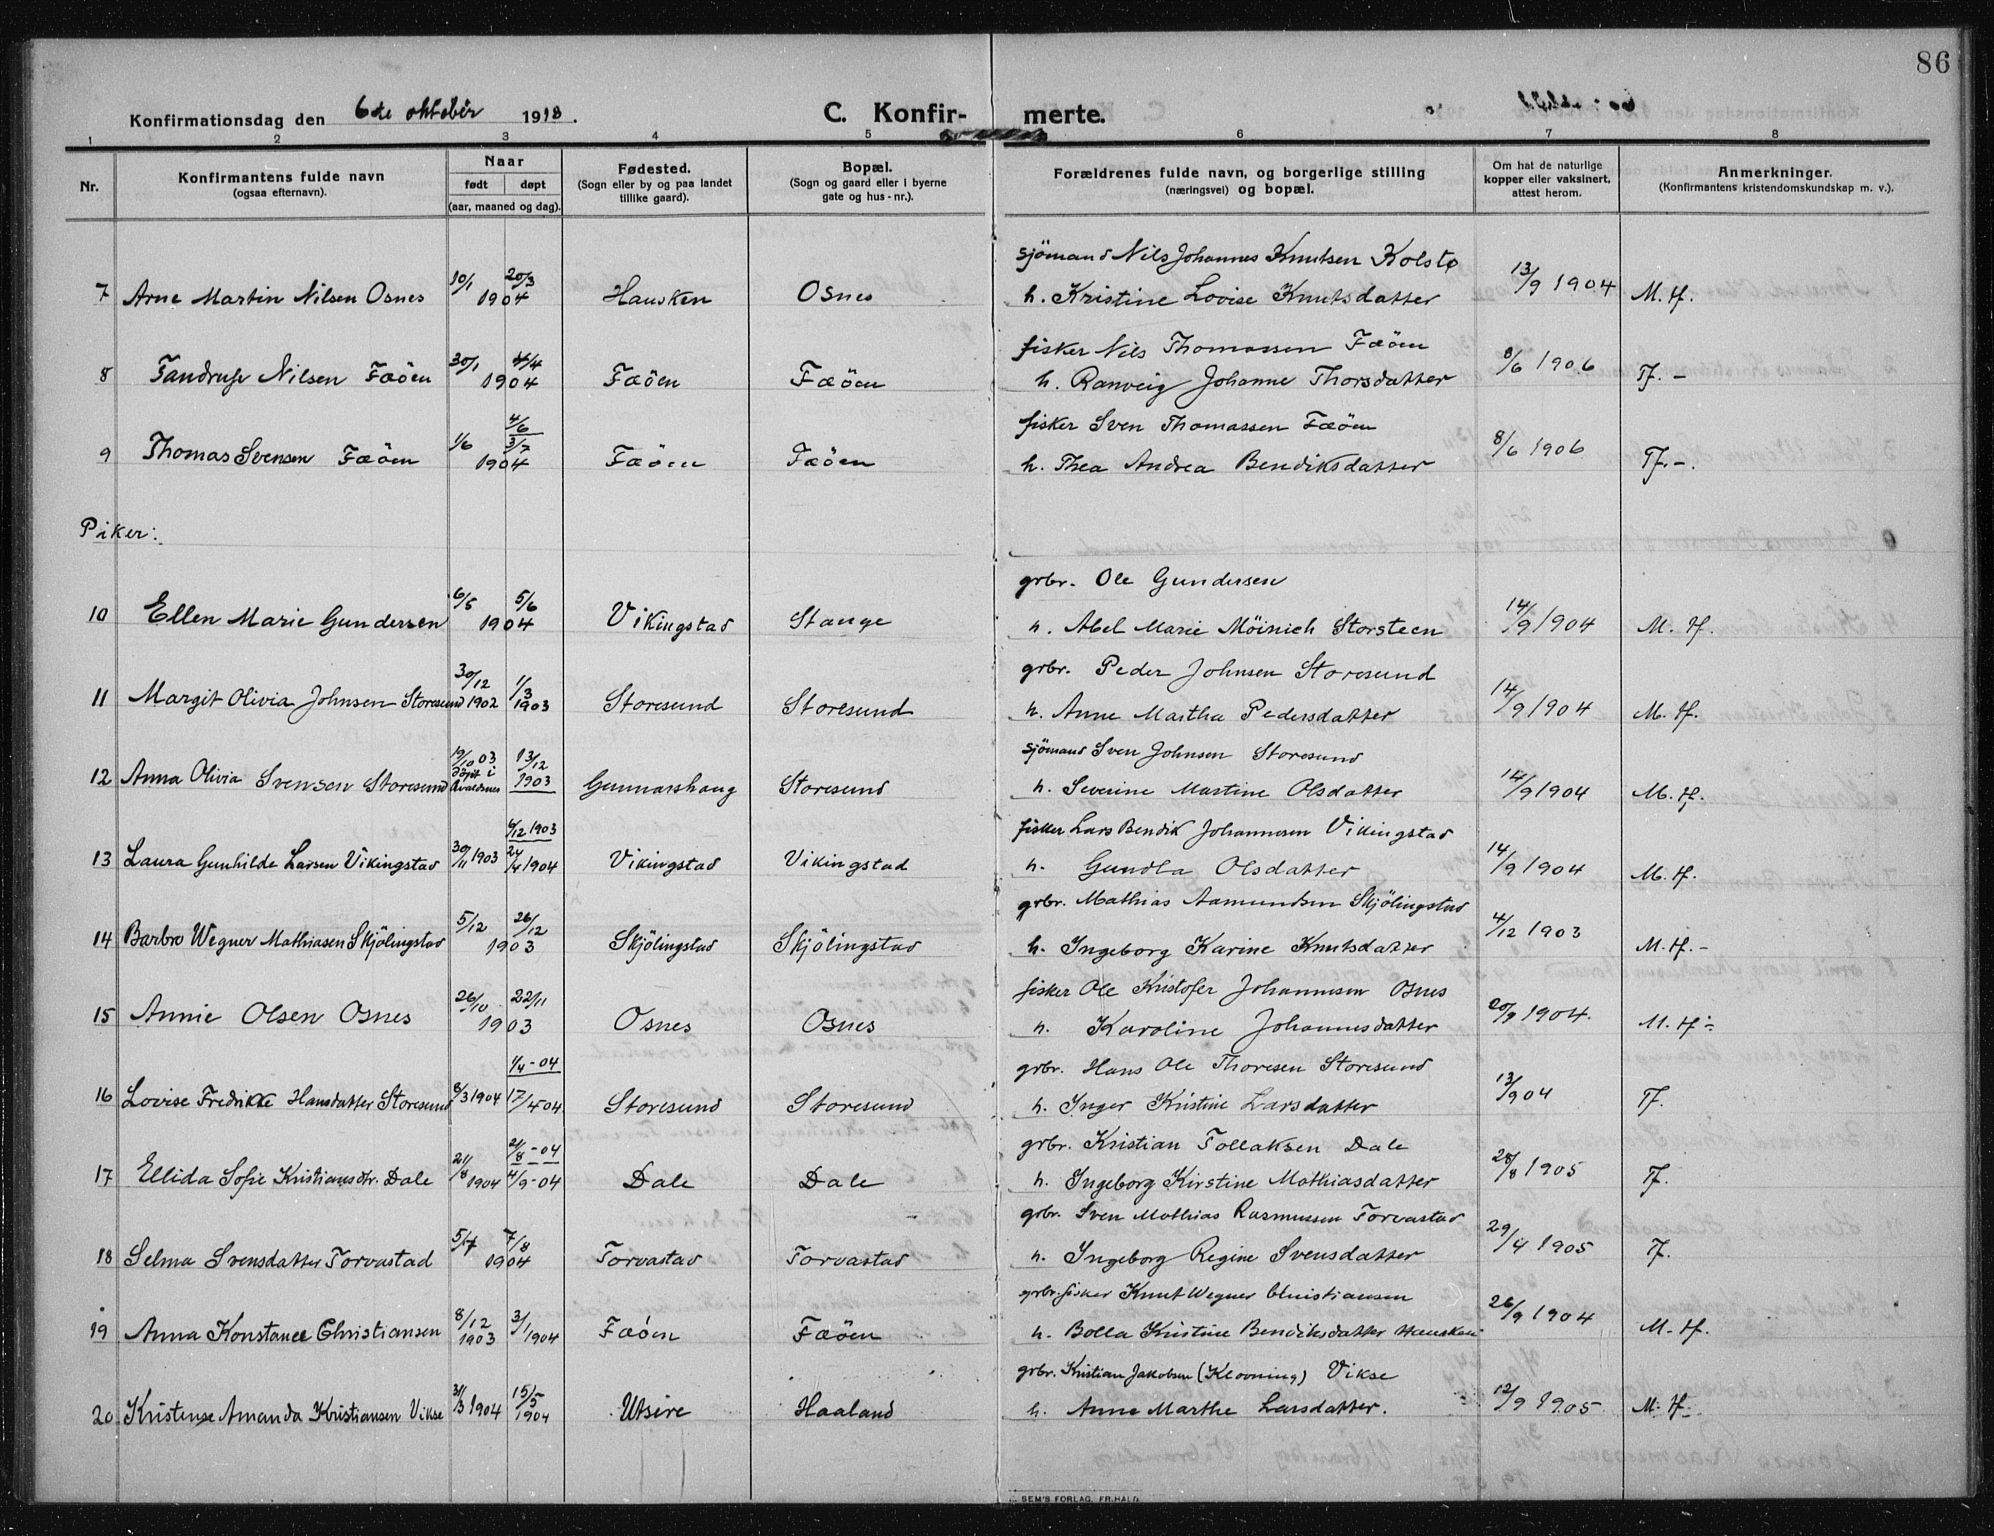 86
Konfirmationsdag den 6de oktober 1918.
C. Konfirmerte.
1 2 3 4 5 6 7 8
Nr.
Konfirmantens fulde navn
(ogsaa efternavn).
Naar
født døpt
(aar, maaned og dag).
Fødested.
(Sogn eller by og paa landet
tillike gaard).
Bopæl.
(Sogn og gaard eller i byerne
gate og hus-nr.).
Forældrenes fulde navn, og borgerlige stilling
(næringsvei) og bopæl.
Om hat de naturlige
kopper eller vaksinert,
attest herom.
Anmerkninger.
(Konfirmantens kristendomskundskap m. v.).
sjömand Nils Johannes Knutsen Kolstø
7 Arne Martin Nilsen Osnes 10/1 20/3 1904 Hausken Osnes h. Kristine Lovise Knutsdatter 13/9 1904 M. H.
fisker Nils Thomassen Fæöen
8 Tandrup Nilsen Fæöen 30/1 4/4 1904 Fæöen Fæöen h. Ranveig Johanne Thorsdatter 8/6 1906 Tf. -
fisker Sven Thomassen Fæöen
9 Thomas Svensen Fæöen 1/6 4/6 3/7 1904 Fæöen Fæöen h. Thea Andrea Bendiksdatter 8/6 1906 Tf. -.
Piker:
grbr. Ole Gundersen
10 Ellen Marie Gundersen 6/5 5/6 1904 Vikingstad Stange h. Abel Marie Möinich Storsteen 14/9 1904 M. H.
grbr. Peder Johnsen Storesund
11 Margit Olivia Johnsen Storesund 30/12 1902 1/3 1903 Storesund Storesund h. Anne Martha Pedersdatter 14/9 1904 M. H.
sjömand Sven Johnsen Storesund
12 Anna Olivia Svensen Storesund 19/10 03 döpt i Avaldsnes 13/12 1903 Gunnarshaug Storesund h. Severine Martine Olsdatter 14/9 1904 M. H.
fisker Lars Bendik Johannesen Vikingstad
13 Laura Gunhilde Larsen Vikingstad 30/11 1903 6/12 1903 24/4 1904 Vikingstad Vikingstad h. Gundla Olsdatter 14/9 1904 M. H.
grbr. Mathias Aamundsen Skjölingstad
14 Barbro Wegner Mathiasen Skjölingstad 5/12 26/12 1903 Skjölingstad Skjölingstad h. Ingeborg Karine Knutsdatter 4/12 1903 M. H. -
fisker Ole Kristofer Johannesen Osnes
15 Annie Olsen Osnes 26/10 22/11 1903 Osnes Osnes h. Karoline Johannesdatter 20/9 1904. M. H -
grbr. Hans Ole Thoresen Storesund
16 Lovise Fredrikke Hansdatter Storesund 8/3 1904 1/4 - 04 17/4 04 Storesund Storesund h. Inger Kristine Larsdatter 13/9 04 Tf.
grbr. Kristian Tollaksen Dale
17 Ellida Sofie Kristiansdtr. Dale 21/8 1904 21/8 - 04 4/9 - 04 Dale Dale h. Ingeborg Kirstine Mathiasdatter 28/8 1905 Tf.
grbr. Sven Mathias Rasmussen Torvastad
18 Selma Svensdatter Torvastad 5/7 7/8 1904 Torvastad Torvastad h. Ingeborg Regine Svensdatter 29/4 1905 Tf.
grbr. fisker Knut Wegner Christiansen
19 Anna Konstance Christiansen 8/12 1903 3/1 1904 Fæöen Fæöen h. Bolla Kristine Bendiksdatter Hausken 26/9 1904 M. H.
grbr. Kristian Jakobsen (Klovning) Vikse
20 Kristense Amanda Kristiansen Vikse 31/3 1904 15/5 1904 Utsire Haaland h. Anne Marthe Larsdatter. 12/9 1905 M. H.
SEM'S FORLAG, FR.HALD